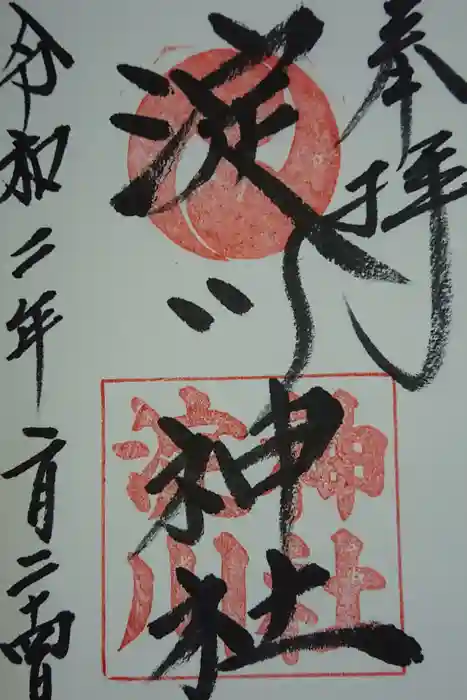 奉拝
淀川神社
淀川神社
令和二年二月二十四日